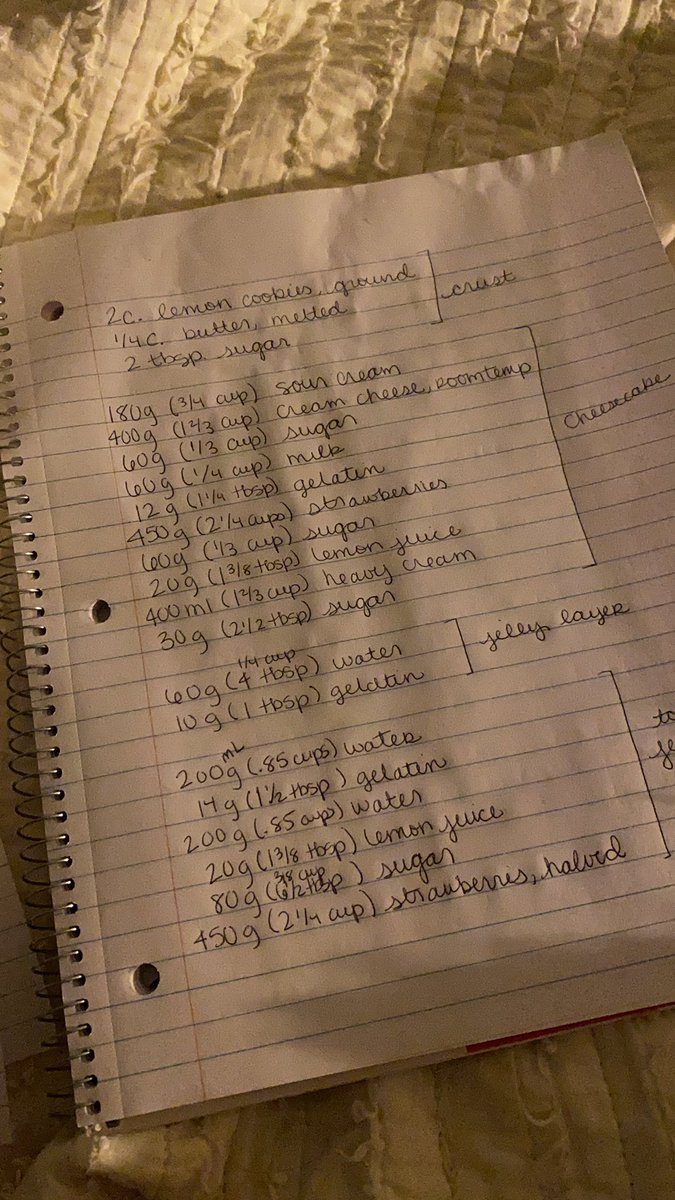 2c. lemon cookies, ground
1/4 c. butter, melted
2 tbsp sugar
crust
180g (3/4 cup) sour cream
400g (1 2/3 cup) cream cheese, room temp
60g (1/3 cup) sugar
60g (1/4 cup) milk
12g (1 1/4 tbsp) gelatin
450g (2 1/4 cups) strawberries
60g (1/3 cup) sugar
20g (1 3/8 tbsp) lemon juice
400ml (1 2/3 cup) heavy cream
30g (2 1/2 tbsp) sugar
cheesecake
1/4 cup
60g (4 tbsp) water
10g (1 tbsp) gelatin
jelly layer
mL
200g (.85 cups) water
14g (1 1/2 tbsp) gelatin
200g (.85 cup) water
20g (1 3/8 tbsp) lemon juice
3/8 cup
80g (6 1/2 tbsp) sugar
450g (2 1/4 cup) strawberries, halved
to
je